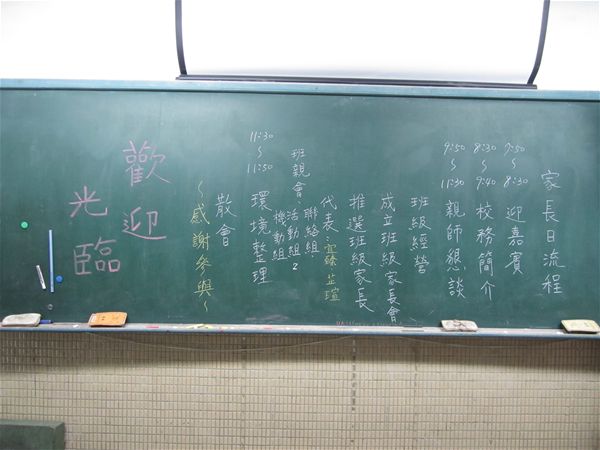 家長日流程
7:50~8:30 迎嘉賓
8:30~9:40 校務簡介
9:50~11:30 親師懇談
班級經營
成立班級家長會
推選班級家長
代表:
班親會:聯絡組
活動組2
機動組
11:30~11:50 環境整理
散會
~感謝參與~
歡迎
光臨